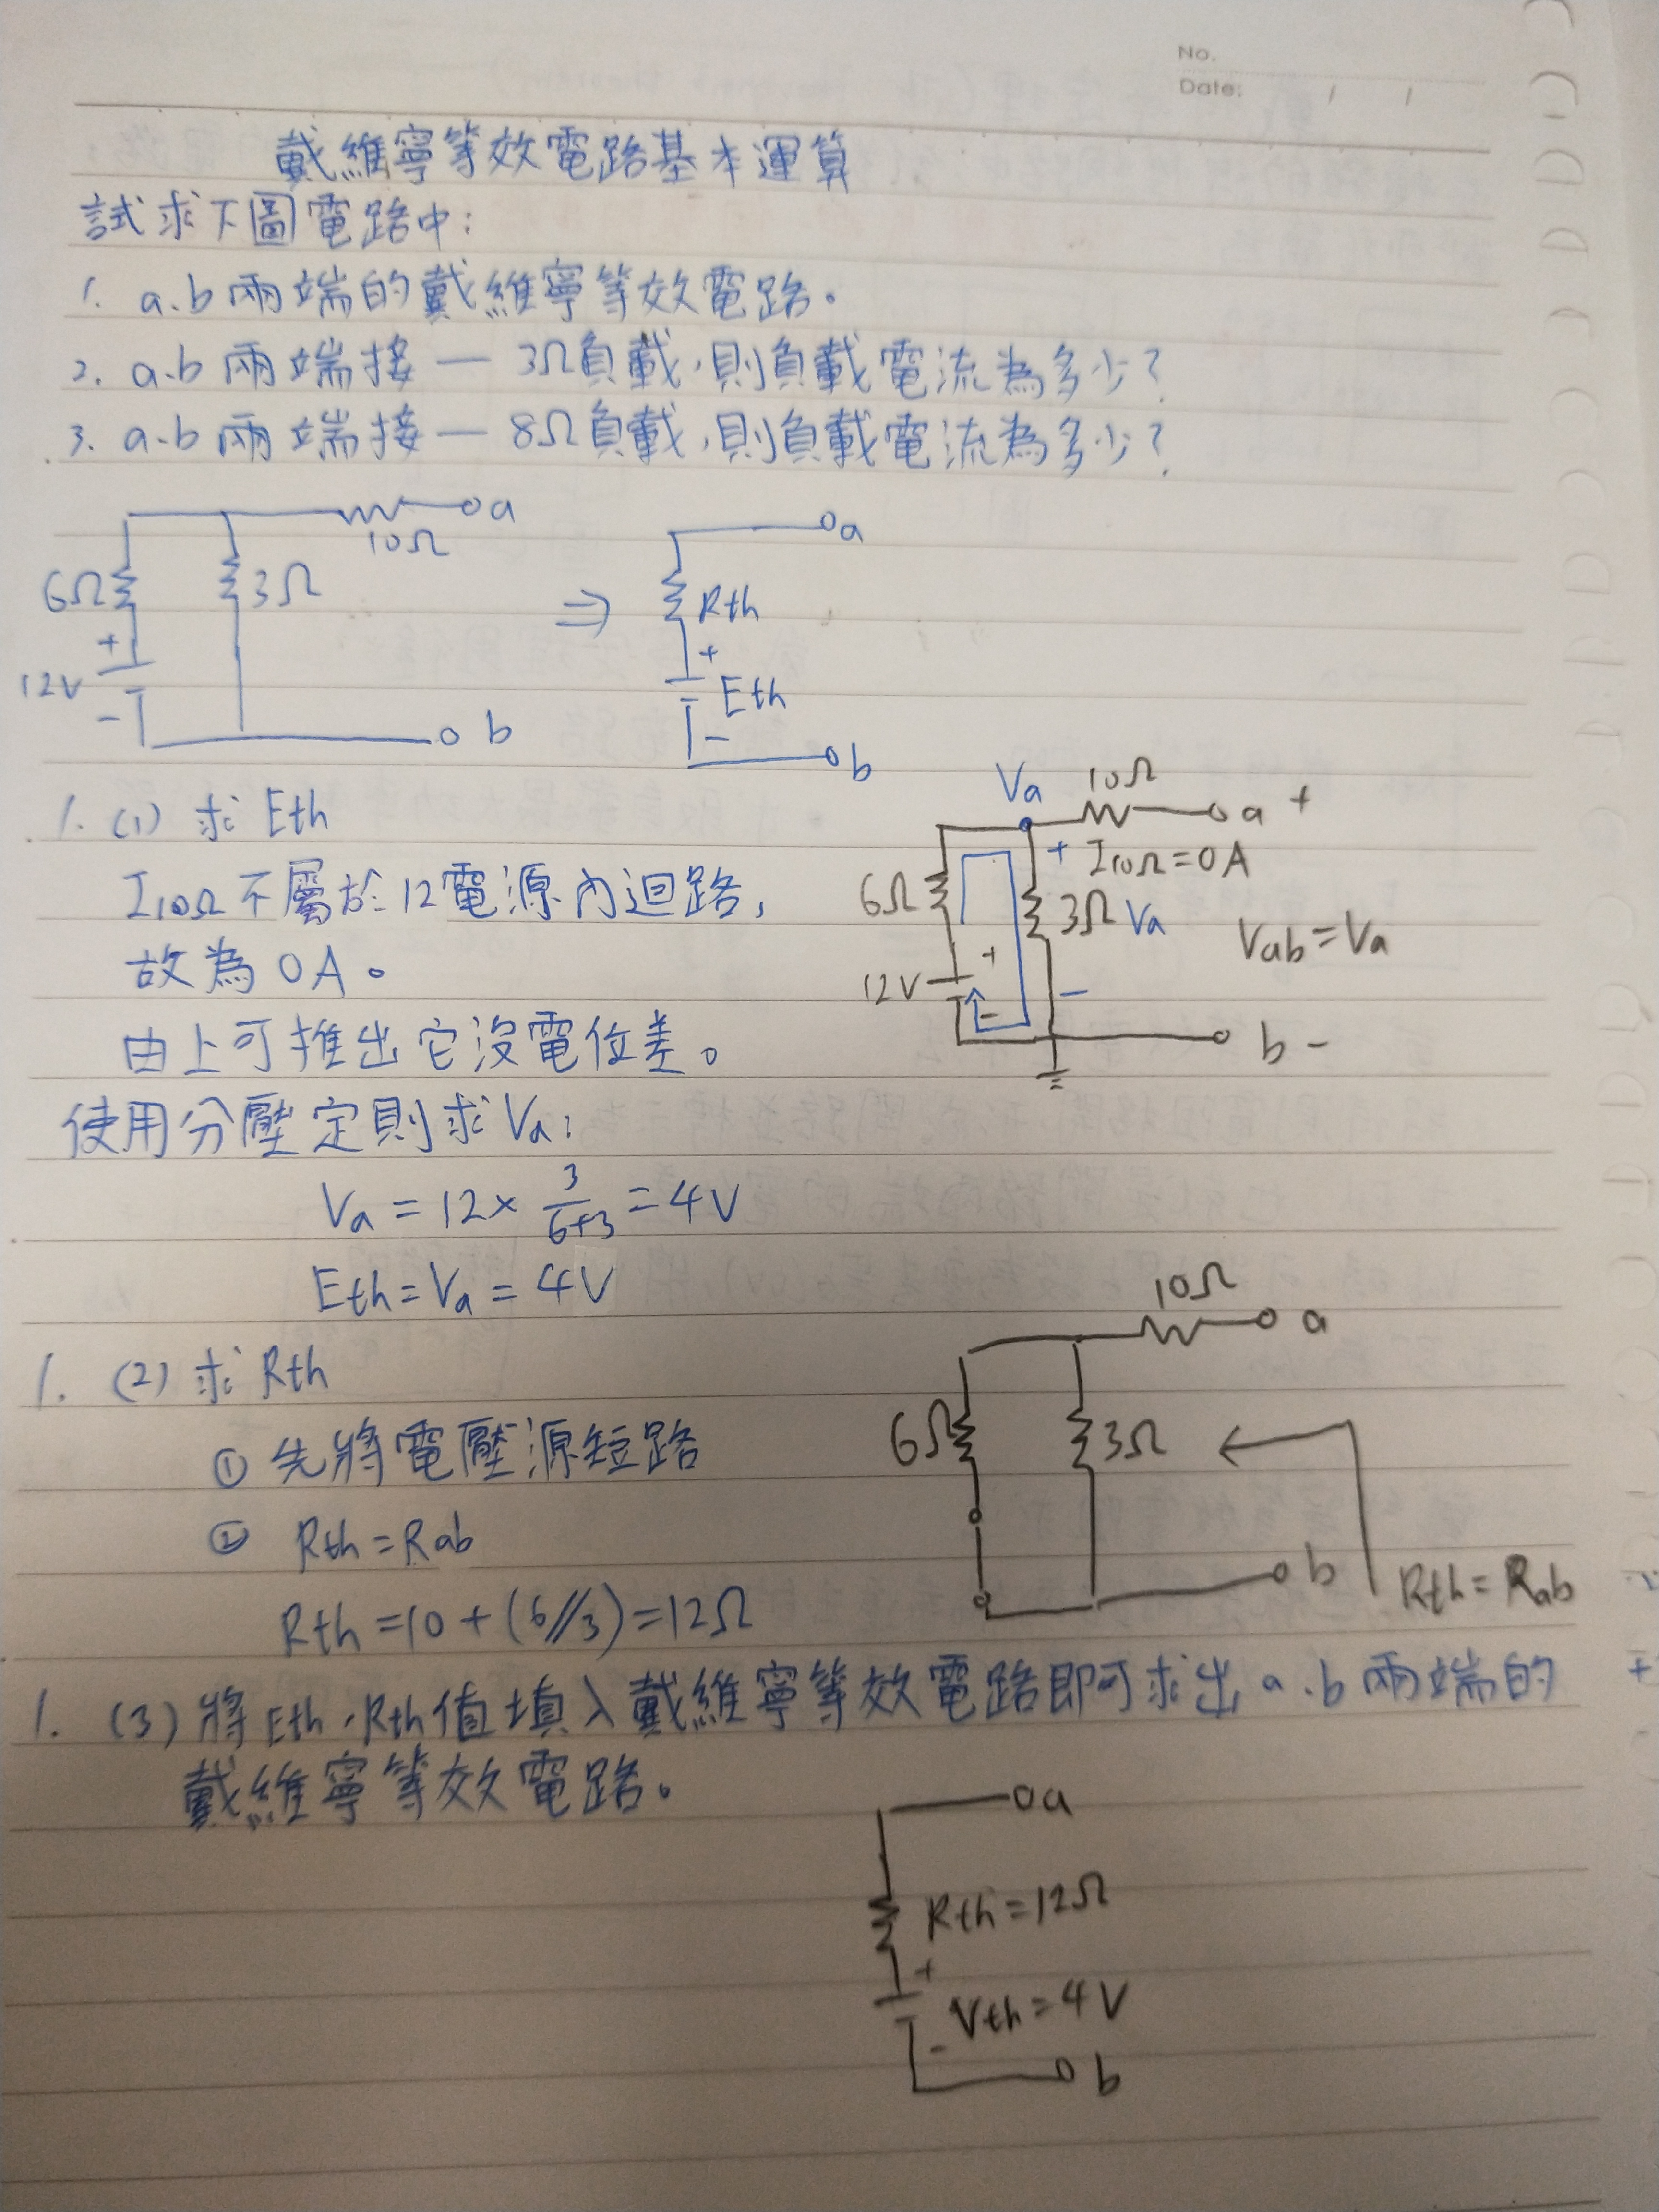 No.
Date: / /
戴維寧等效電路基本運算
試求下圖電路中:
1. a.b兩端的戴維寧等效電路。
2. a.b兩端接一3Ω負載,則負載電流為多少?
3. a.b兩端接一8Ω負載,則負載電流為多少?
10Ω a
6Ω 3Ω
+
12V
-
b
⇒
a
Rth
+
Eth
-
b
1. (1) 求Eth
I10Ω不屬於12電源內迴路,
故為0A。
由上可推出它沒電位差。
Va 10Ω a +
+ I10Ω=0A
6Ω 3Ω Va
Vab=Va
12V + -
-
b -
使用分壓定則求Va:
Va = 12× 3/6+3 = 4V
Eth=Va = 4V
1. (2) 求Rth
① 先將電壓源短路
② Rth=Rab
Rth=10+(6//3)=12Ω
10Ω a
6Ω 3Ω
b
Rth=Rab
1. (3) 將Eth、Rth值填入戴維寧等效電路即可求出a.b兩端的
戴維寧等效電路。
a
Rth=12Ω
+
Vth=4V
-
b